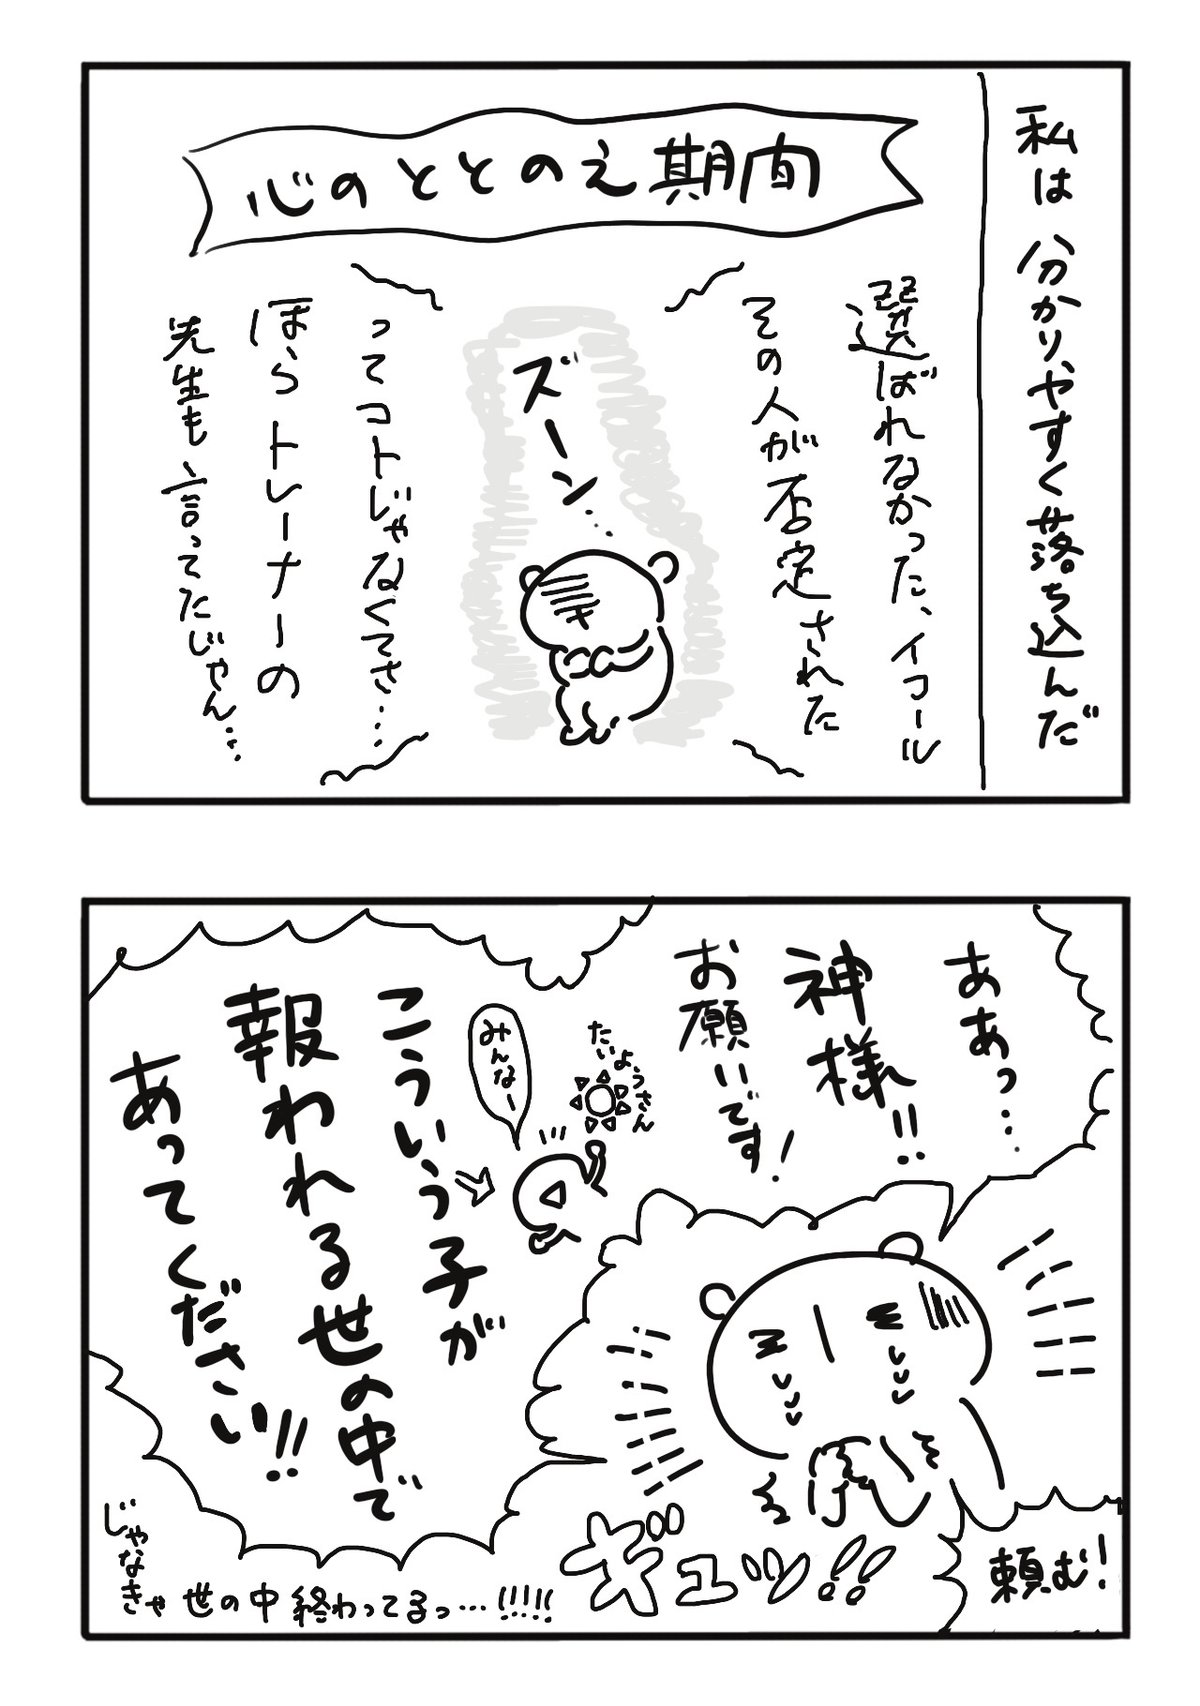 私は分かりやすく落ち込んだ
心のととのえ期間
選ばれなかった、イコール
その人が否定された
ズーン…
ってコトじゃなくてさ…
ほらトレーナーの
先生も言ってたじゃん…
ああっ…
神様!!
お願いです!
たいようさん
みんなー
こういう子が
報われる世の中で
あってください!!
ギュッ!!
頼む!
じゃなきゃ世の中終わってるっ…!!!!